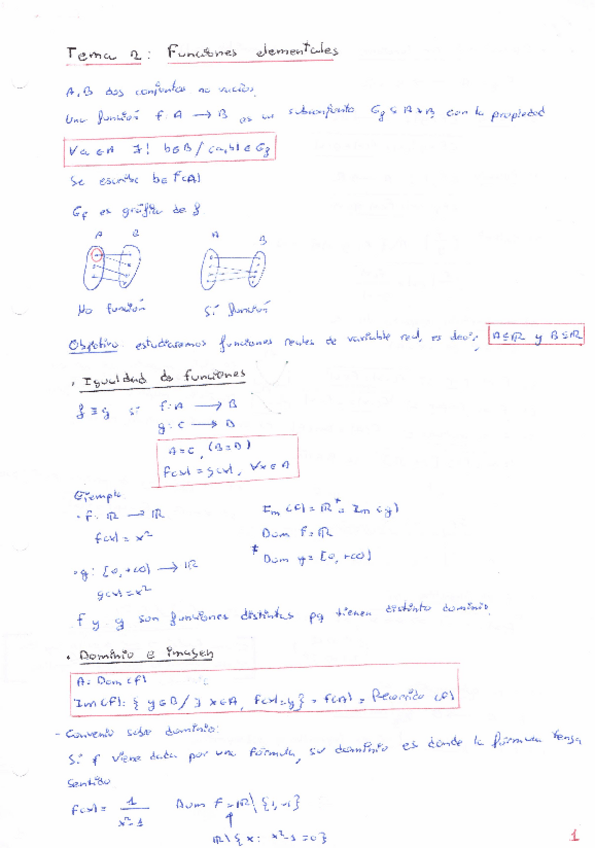 Tema 2: Funciones elementales
A, B dos conjuntos no vacíos.
Una función f A → B es un subconjunto Gf ⊆ A×B con la propiedad
∀a ∈ A ∃! b∈B / (a,b) ∈ Gf
Se escribe b∈ f(A)
Gf es gráfica de f
A B A B
No función Sí función
Objetivo: estudiaremos funciones reales de variable real, es decir, A⊆ℝ y B⊆ℝ
· Igualdad de funciones
f ≡ g si f: A → B
g: C → B
A=C, (B=B)
f(x) = g(x), ∀x ∈ A
Ejemplo
· f: ℝ → ℝ Im(f) = ℝ⁺ = Im(g)
f(x) = x² Dom f = ℝ
· g: [0,+∞) → ℝ * Dom g = [0,+∞)
g(x) = x²
f y g son funciones distintas pq tienen distinto dominio.
· Dominio e imagen
A = Dom(f)
Im(f) = { y∈B / ∃ x∈A, f(x)=y} = f(A) = Recorrido (f)
- Convenio sobre dominio:
Si f viene dada por una fórmula, su dominio es donde la fórmula tenga
sentido
f(x) = 1 / x²-1 Dom f = ℝ\ {1,-1}
ℝ\ {x: x²-1=0}
1